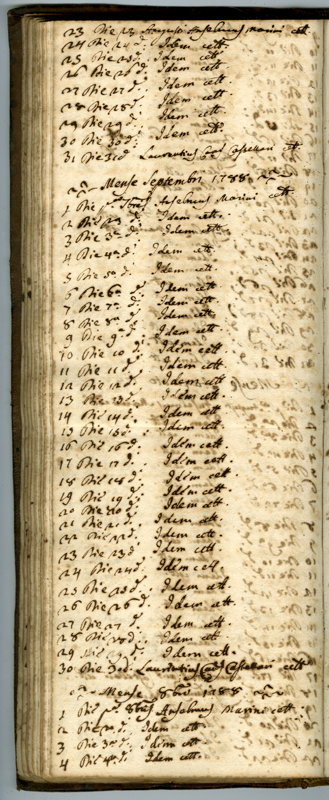 23 Die 23 Augusti Anselmus Marini cett.
24 Die 24 d: Idem cett.
25 Die 25 d: Idem cett.
26 Die 26 d: Idem cett.
27 Die 27 d: Idem cett.
28 Die 28 d: Idem cett.
29 Die 29 d: Idem cett.
30 Die 30 d: Idem cett.
31 Die 31 d: Laurentius Castellari cett.
Mense Septembri 1788
1 Die Anselmus Marini cett
2 Die 2 d: Idem cett.
3 Die 3a d: Idem cett.
4 Die 4a d: Idem cett.
5 Die 5a d: Idem cett.
6 Die 6a d: Idem cett
7 Die 7a d: Idem cett.
8 Die 8a d: Idem cett.
9 Die 9a d: Idem cett.
10 Die 10 d: Idem cett.
11 Die 11 d: Idem cett.
12 Die 12 d: Idem cett.
13 Die 13 d: Idem cett.
14 Die 14 d: Idem cett
15 Die 15 d: Idem cett.
16 Die 16 d: Idem cett.
17 Die 17 d: Idem cett.
18 Die 18 d: Idem cett.
19 Die 19 d: Idem cett.
20 Die 20 d: Idem cett.
21 Die 21 d: Idem cett
22 Die 22 d: Idem cett.
23 Die 23 d Idem cett
24 Die 24 d: Idem cett.
25 Die 25 d: Idem cett.
26 Die 26 d: Idem cett.
27 Die 27 d: Idem cett.
28 Die 28 d: Idem cett
29 Die 29 d: Idem cett
30 Die 30 d: Laurentius Castellari cett
Mense 8bri 1788
1 Die 8bris Anselmus Marini cett.
2 Die 2a d: Idem cett
3 Die 3a d: Idem cett
4 Die 4a d: Idem cett.